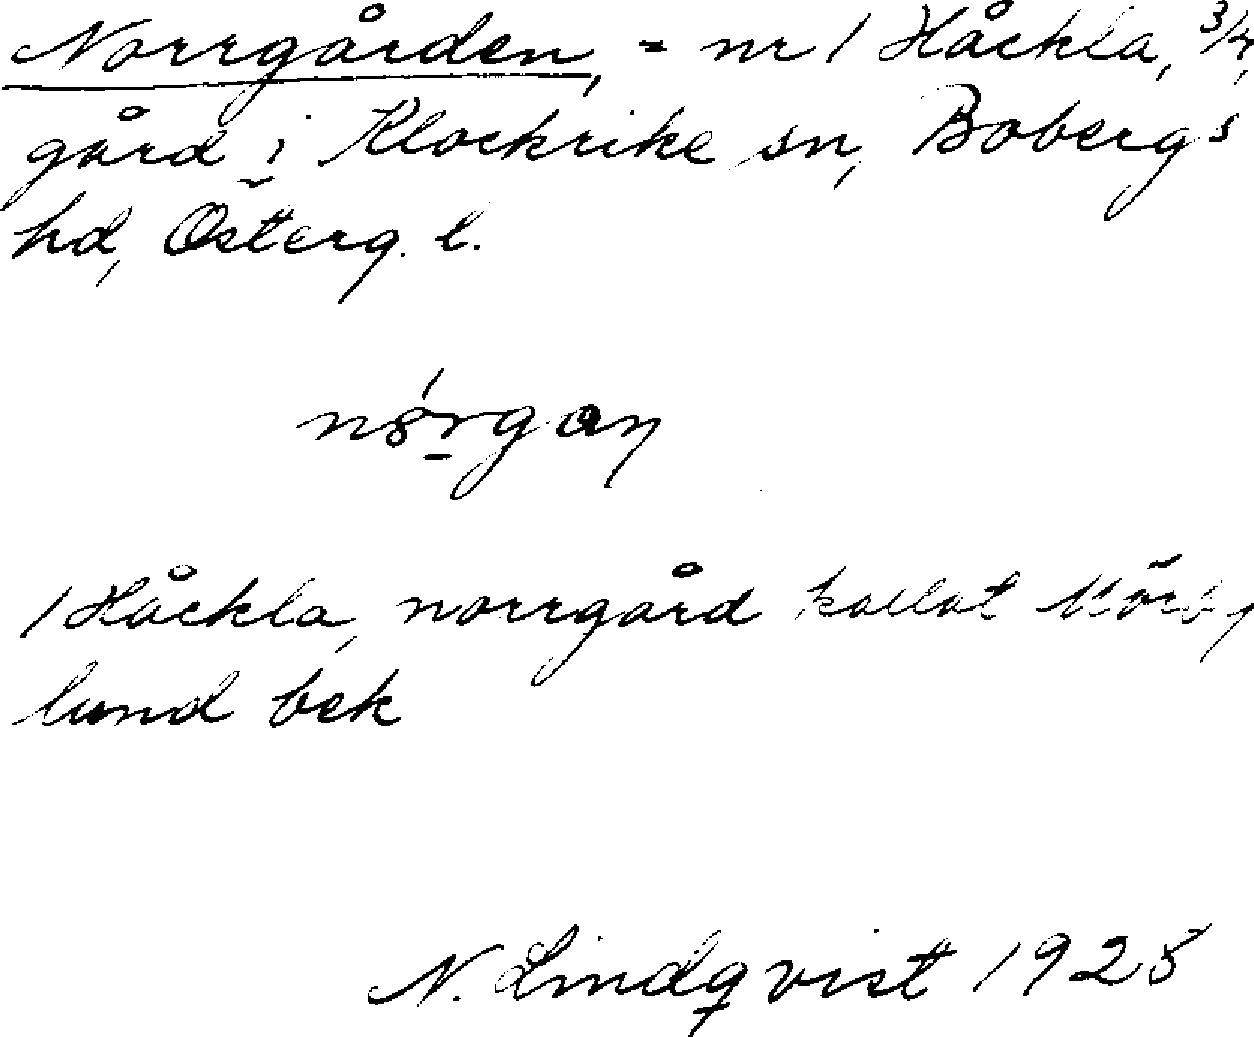 Norrgården, = nr 1 Håckla, 3/4,
gård i Klockrike sn, Bobergs
hd, Österg. l.
1 Håckla, norrgård kallat Mörby
lund bek
N. Lindqvist 1925